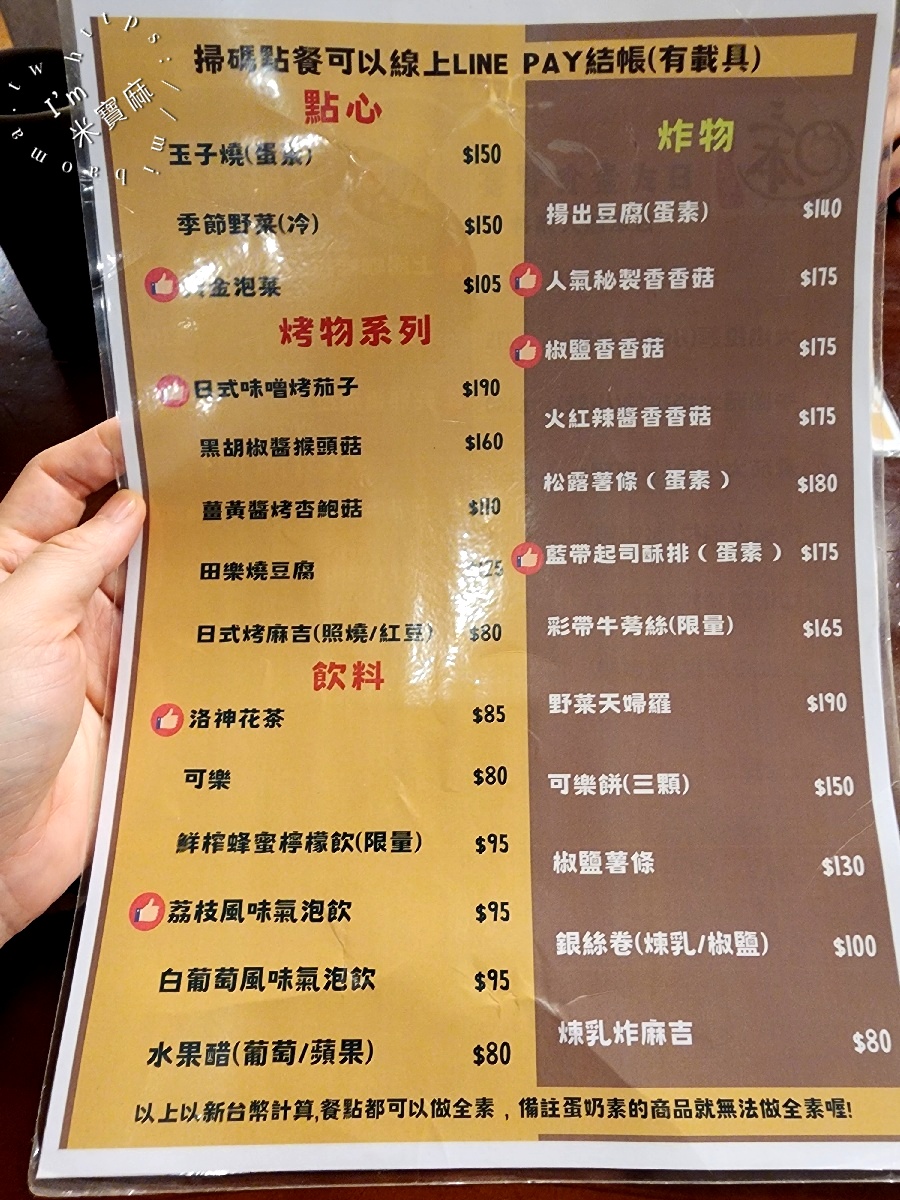 掃碼點餐可以線上LINE PAY結帳(有載具)
點心
玉子燒(蛋素) $150
季節野菜(冷) $150
黃金泡菜 $105
烤物系列
日式味噌烤茄子 $190
黑胡椒醬猴頭菇 $160
薑黃醬烤杏鮑菇 $110
田樂燒豆腐
日式烤麻吉(照燒/紅豆) $80
飲料
洛神花茶 $85
可樂 $80
鮮榨蜂蜜檸檬飲(限量) $95
荔枝風味氣泡飲 $95
白葡萄風味氣泡飲 $95
水果醋(葡萄/蘋果) $80
炸物
揚出豆腐(蛋素) $140
人氣秘製香香菇 $175
椒鹽香香菇 $175
火紅辣醬香香菇 $175
松露薯條(蛋素) $180
藍帶起司酥排(蛋素) $175
彩帶牛蒡絲(限量) $165
野菜天婦羅 $190
可樂餅(三顆) $150
椒鹽薯條 $130
銀絲卷(煉乳/椒鹽) $100
煉乳炸麻吉 $80
以上以新台幣計算,餐點都可以做全素，備註蛋奶素的商品就無法做全素喔!
I'm
米寶麻